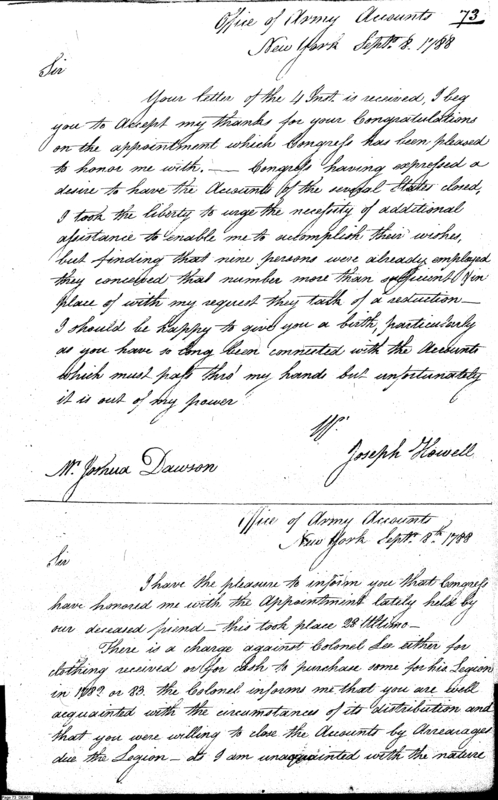 Office of Army Accounts 73
New York Septr. 8. 1788
Sir
Your letter of the 4 Inst. is received, I beg
you to Accept my thanks for your Congratulations
on the appointment which Congress has been pleased
to honor me with. — Congress having expressed a
desire to have the Accounts of the several States closed,
I took the liberty to urge the necessity of additional
assistance to enable me to accomplish their wishes,
but finding that nine persons were already employed
they conceived that number more than sufficient & in
place of with my request they talk of a reduction —
I should be happy to give you a birth, particularly
as you have so long been connected with the Accounts
which must pass thro' my hands but unfortunately
it is out of my power
Joseph Howell
Mr. Joshua Dawson
Office of Army Accounts
New York Septr. 8th. 1788
Sir
I have the pleasure to inform you that Congress
have honored me with the Appointment lately held by
our deceased friend — this took place 28 Ultimo —
There is a charge against Colonel Lee either for
clothing received or for cash to purchase some for his Legion
in 1782 or 83. the Colonel informs me that you are well
acquainted with the circumstances of its distribution and
that you were willing to close the Accounts by Arrearages
due the Legion — as I am unacquainted with the nature